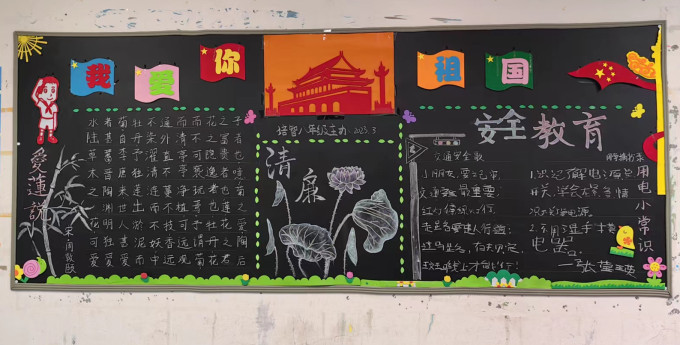 我爱你
祖国
愛蓮說
宋 周敦颐
水陆草木之花可爱
者甚蕃晋陶渊明独爱
菊自李唐来世人甚爱
牡丹予独爱莲之出淤泥而
不染濯清涟而不妖中
通外直不蔓不枝香远
益清亭亭净植可远观
而不可亵玩焉予谓菊
花之隐逸者也牡丹花
之富贵者也莲花之君
子者也噫菊之爱陶后
培智八年级主办 2025.3
清廉
安全教育
交通安全歌
小朋友,要记牢,
交通安全最重要,
红灯停绿灯行,
走路要走人行道;
过马路,左右看,
用电小常识
1.认识了解电源总
开关,学会在紧急情
况下关掉总电源。
2.不用湿手触摸
电器。